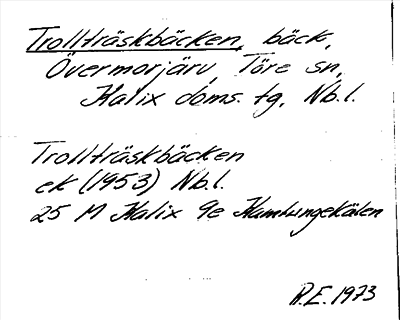 Trollträskbäcken, bäck,
Övermorjärv, Töre sn,
Kalix doms. tg, Nb.l.
Trollträskbäcken
ek (1953) Nb.l.
25 M Kalix 9e Kamlungekölen
R.E. 1973